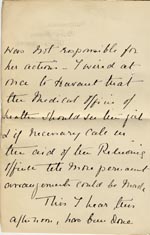 was not responsible for
her actions - I wired at
once to Havant that
the Medical Officer of
Health should see the girl
& if necessary call in
the aid of the Relieving
Officer till more permanent
arrangements could be made
This I hear this
afternoon, has been done